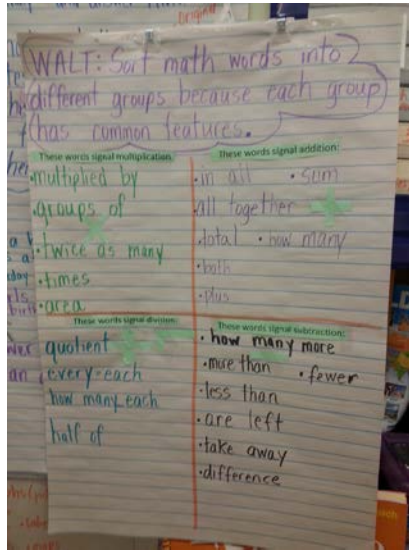 original
WALT: Sort math words into
different groups because each group
has common features.
These words signal multiplication:
•multiplied by
•groups of
•twice as many
•times
•area
These words signal addition:
•in all •sum
all together
•total •how many
•both
•plus
These words signal division:
quotient
every-each
how many each
half of
These words signal subtraction:
•how many more
•more than •fewer
•less than
•are left
•take away
•difference